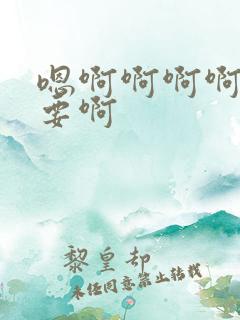 嗯啊啊啊啊
要啊
黎皇却
未经同意禁止转载